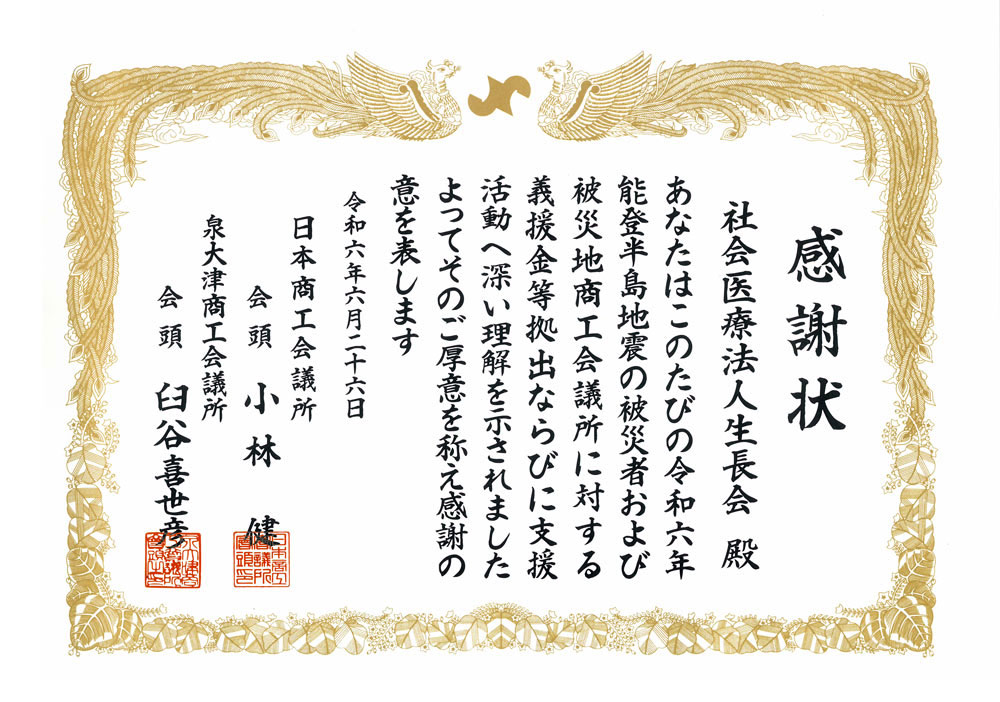 感謝状
社会医療法人生長会 殿
あなたはこのたびの令和六年
能登半島地震の被災者および
被災地商工会議所に対する
義援金等拠出ならびに支援
活動へ深い理解を示されました
よってそのご厚意を称え感謝の
意を表します
令和六年六月二十六日
日本商工会議所
会頭 小林 健
泉大津商工会議所
会頭 臼谷喜世彦